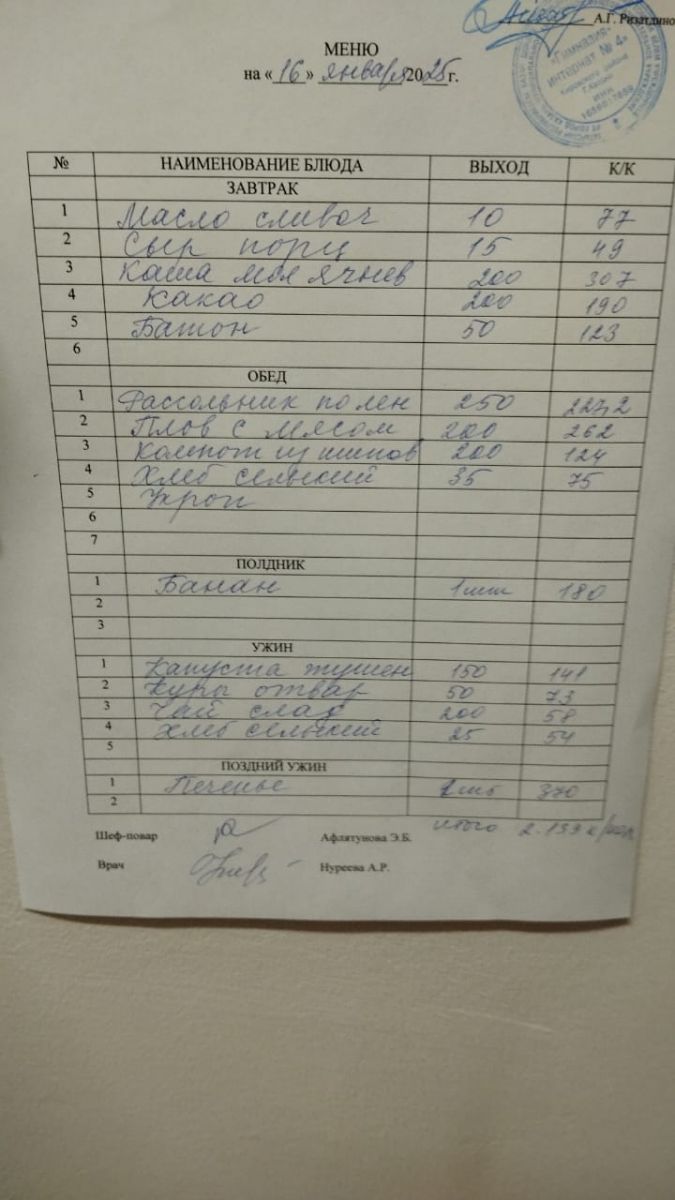 А.Г. Ризатдино
«Гимназия-
интернат № 4»
Кировского района
г.Казани
ИНН
МЕНЮ
на « 16 » января 2025 г.
№ НАИМЕНОВАНИЕ БЛЮДА ВЫХОД К/К
ЗАВТРАК
1 Масло сливоч 10 77
2 Сыр порц 15 49
3 Каша мол ячнев 200 307
4 Какао 200 190
5 Батон 50 123
6
ОБЕД
1 Рассольник по лен 250 227,2
2 Плов с мясом 200 262
3 Компот из шипов 200 124
4 Хлеб сельский 35 75
5 Укроп
6
7
ПОЛДНИК
1 Банан 1 шт 180
2
3
УЖИН
1 Капуста тушен 150 141
2 Куры отвар 50 73
3 Чай слад 200 58
4 Хлеб сельский 25 54
5
ПОЗДНИЙ УЖИН
1 Печенье шт 370
2
итого 2.199
Шеф-повар Афлятунова Э.Б.
Врач Нуреева А.Р.